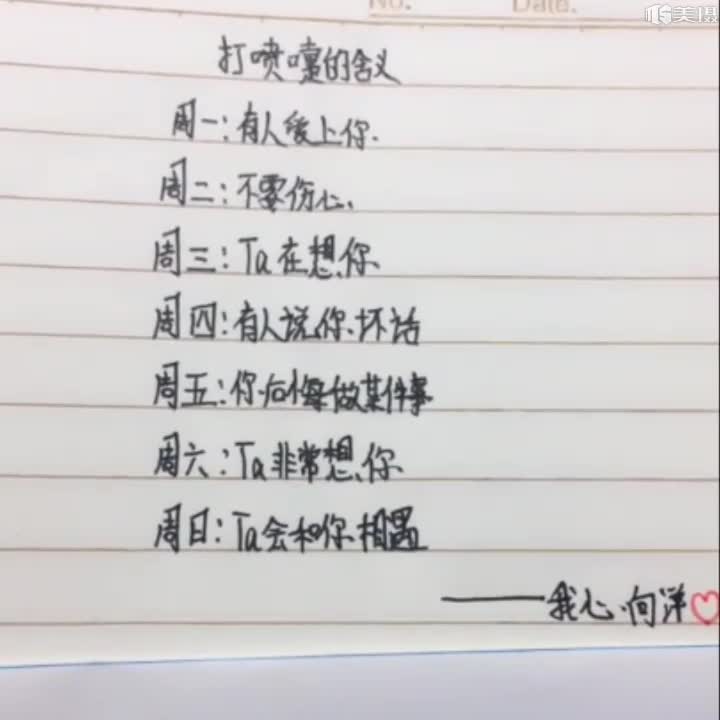 No.
Date.
美摄
打喷嚏的含义
周一:有人爱上你.
周二:不要伤心、
周三:Ta在想你
周四:有人说你坏话
周五:你后悔做某件事
周六:Ta非常想你
周日:Ta会和你相遇
——我心向洋♡